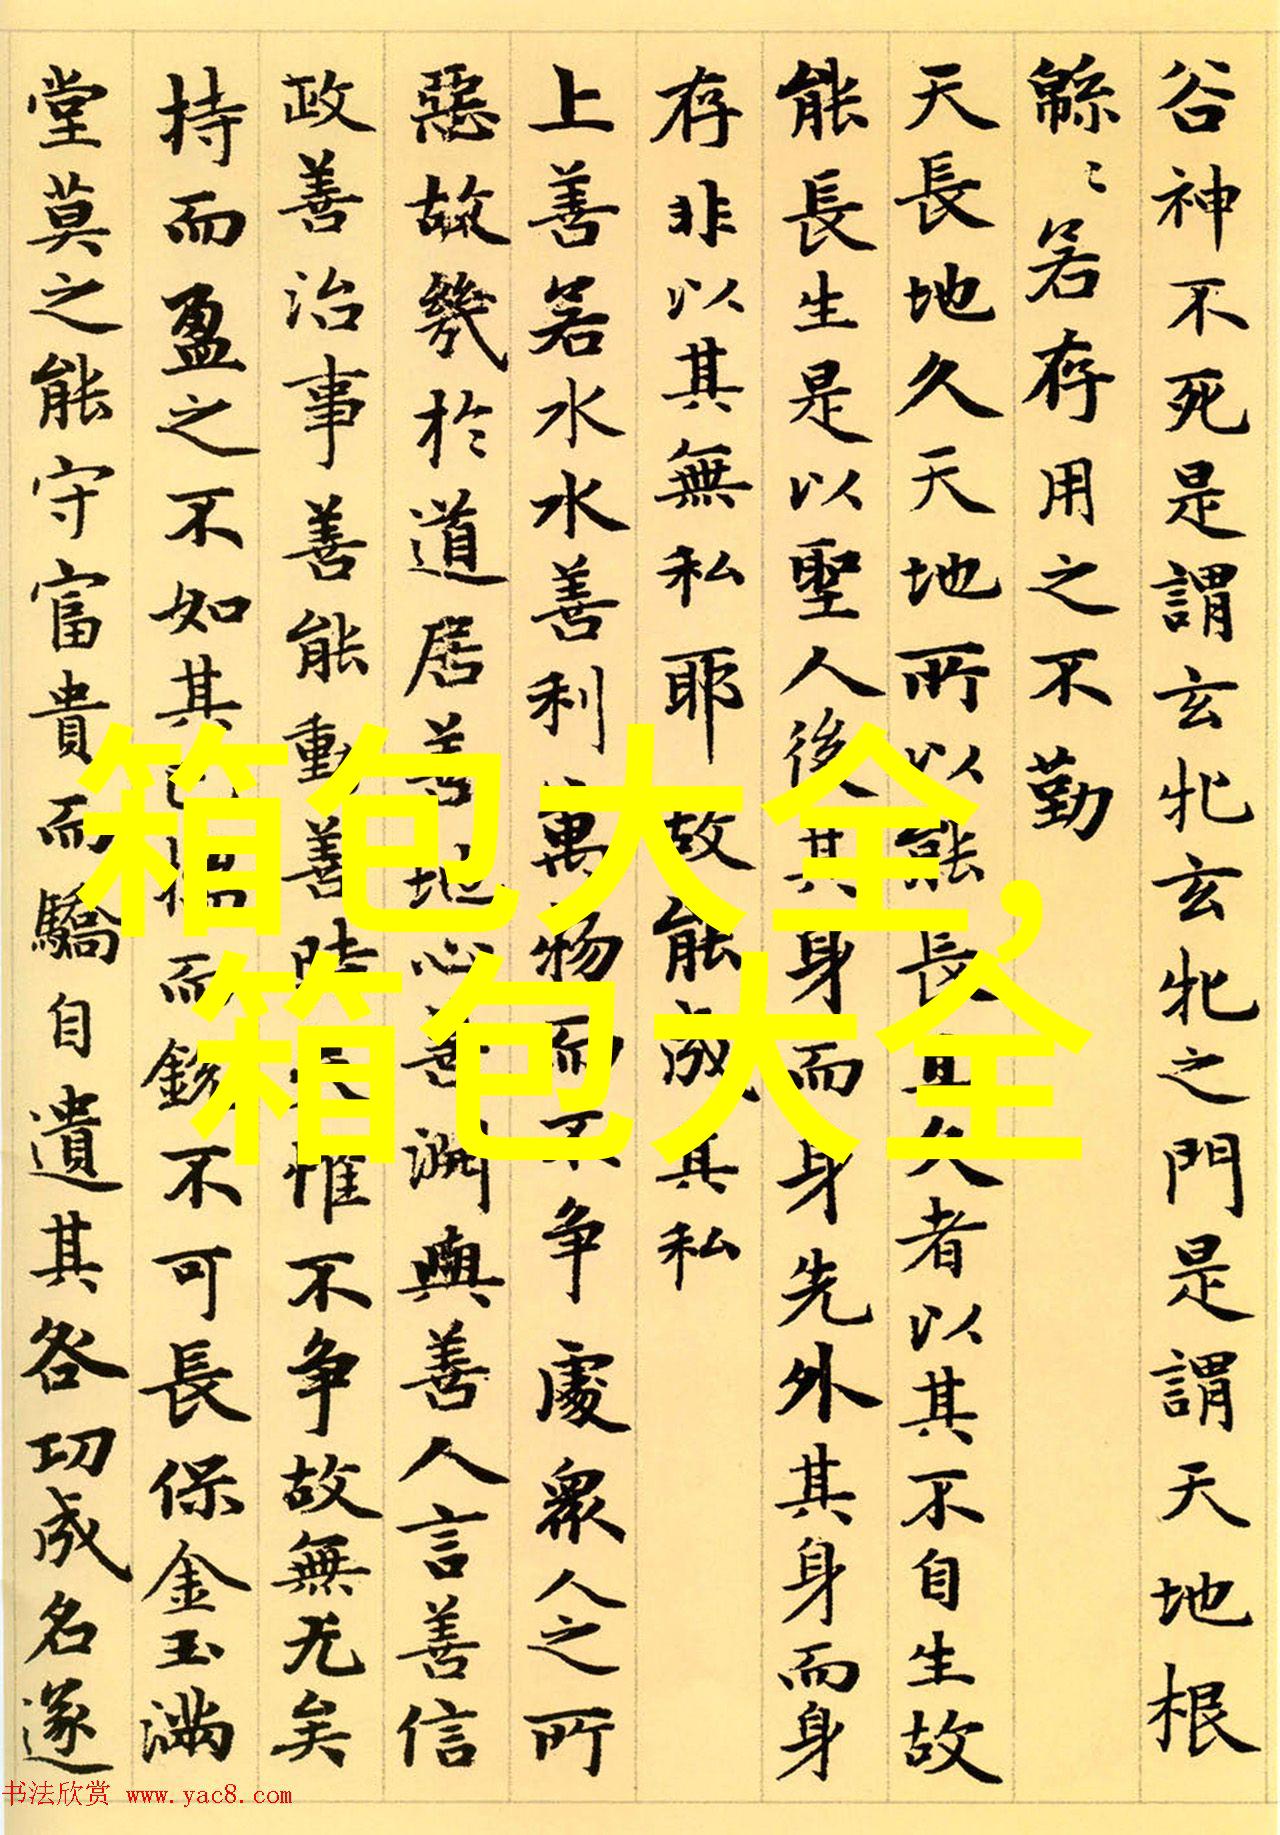 谷神不死是謂玄牝玄牝之門是謂天地根
緜〻若存用之不勤
天長地久天地所以能長且久者以其不自生故
能長生是以聖人後其身而身先外其身而身
存非以其無私耶故能成其私
上善若水水善利萬物而不争處衆人之所
惡故幾於道居善地心善渊與善人言善信
政善治事善能動善時夫惟不争故無尤矣
持而盈之不如其已揣而銳不可長保金玉滿
堂莫之能守富貴而驕自遺其咎功成名遂
箱包大全,
箱包大全
书法欣赏 www.yac8.com